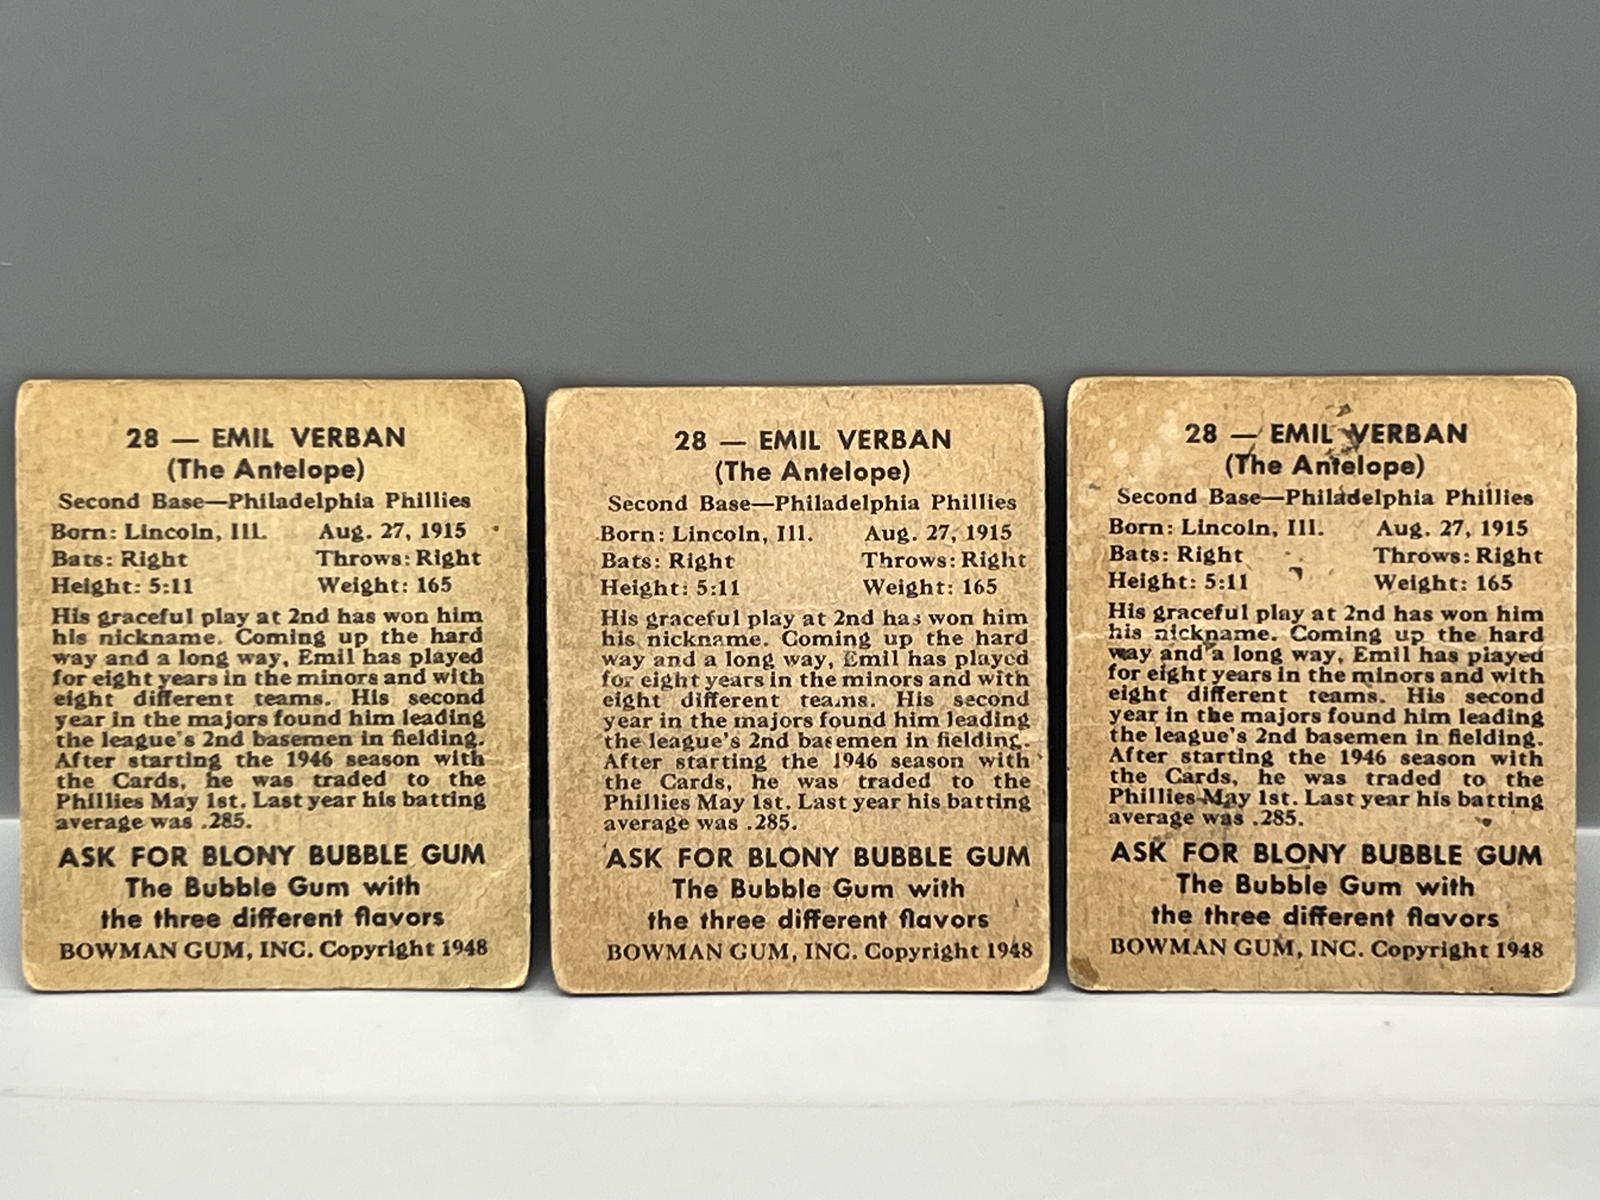 28 — EMIL VERBAN
(The Antelope)
Second Base—Philadelphia Phillies
Born: Lincoln, Ill. Aug. 27, 1915
Bats: Right Throws: Right
Height: 5:11 Weight: 165
His graceful play at 2nd has won him
his nickname. Coming up the hard
way and a long way, Emil has played
for eight years in the minors and with
eight different teams. His second
year in the majors found him leading
the league's 2nd basemen in fielding.
After starting the 1946 season with
the Cards, he was traded to the
Phillies May 1st. Last year his batting
average was .285.
ASK FOR BLONY BUBBLE GUM
The Bubble Gum with
the three different flavors
BOWMAN GUM, INC. Copyright 1948
28 — EMIL VERBAN
(The Antelope)
Second Base—Philadelphia Phillies
Born: Lincoln, Ill. Aug. 27, 1915
Bats: Right Throws: Right
Height: 5:11 Weight: 165
His graceful play at 2nd has won him
his nickname. Coming up the hard
way and a long way, Emil has played
for eight years in the minors and with
eight different teams. His second
year in the majors found him leading
the league's 2nd basemen in fielding.
After starting the 1946 season with
the Cards, he was traded to the
Phillies May 1st. Last year his batting
average was .285.
ASK FOR BLONY BUBBLE GUM
The Bubble Gum with
the three different flavors
BOWMAN GUM, INC. Copyright 1948
28 — EMIL VERBAN
(The Antelope)
Second Base—Philadelphia Phillies
Born: Lincoln, Ill. Aug. 27, 1915
Bats: Right Throws: Right
Height: 5:11 Weight: 165
His graceful play at 2nd has won him
his nickname. Coming up the hard
way and a long way, Emil has played
for eight years in the minors and with
eight different teams. His second
year in the majors found him leading
the league's 2nd basemen in fielding.
After starting the 1946 season with
the Cards, he was traded to the
Phillies May 1st. Last year his batting
average was .285.
ASK FOR BLONY BUBBLE GUM
The Bubble Gum with
the three different flavors
BOWMAN GUM, INC. Copyright 1948